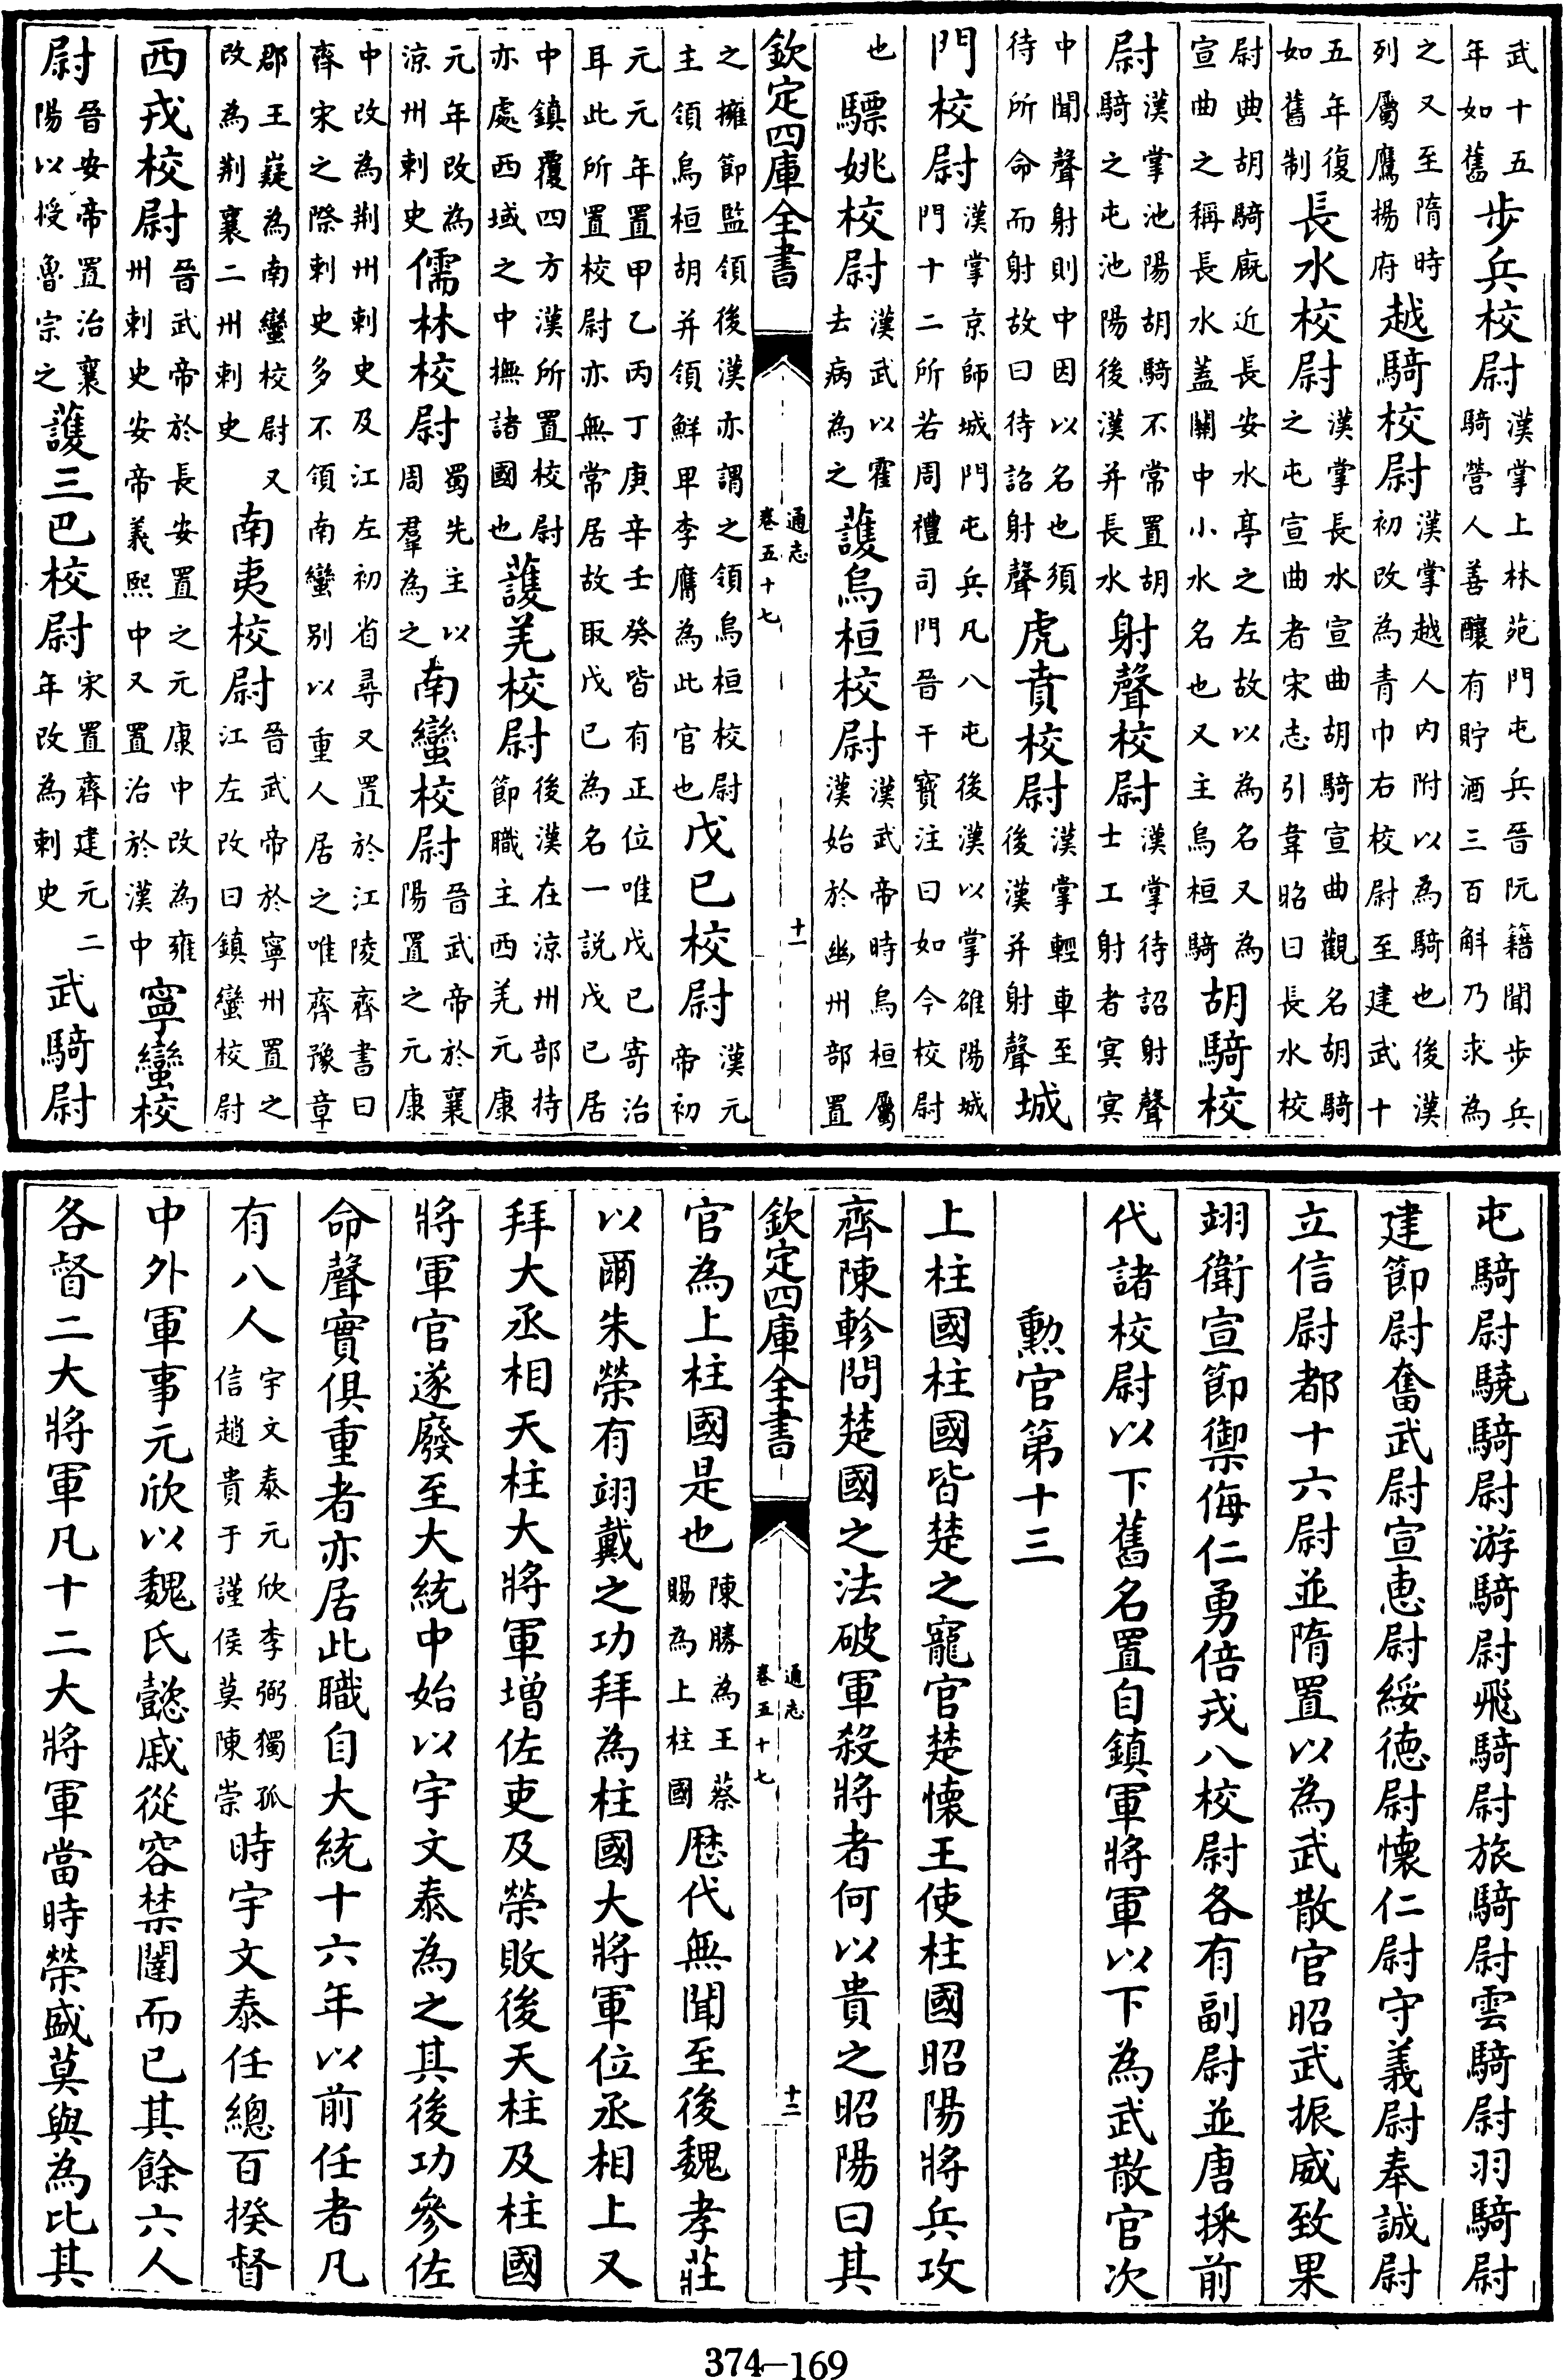 武十五年如舊步兵校尉漢掌上林苑門屯兵晉阮籍聞步兵騎營人善釀有貯酒三百斛乃求為
之又至隋時列屬鷹揚府越騎校尉漢掌越人内附以為騎也後漢初改為青巾右校尉至建武十
五年復如舊制長水校尉漢掌長水宣曲胡騎宣曲觀名胡騎之屯宣曲者宋志引韋昭曰長水校
尉典胡騎廐近長安水亭之左故以為名又為宣曲之稱長水蓋關中小水名也又主烏桓騎胡騎校
尉漢掌池陽胡騎不常置胡騎之屯池陽後漢并長水射聲校尉漢掌待詔射聲士工射者㝠㝠
中聞聲射則中因以名也須待所命而射故曰待詔射聲虎賁校尉漢掌輕車至後漢并射聲城
門校尉漢掌京師城門屯兵凡八屯後漢以掌雒陽城門十二所若周禮司門晉干寶注曰如今校尉
也驃姚校尉漢武以霍去病為之䕶烏桓校尉漢武帝時烏桓屬漢始於幽州部置
欽定四庫全書 通志卷五十七 十一
之擁節監領後漢亦謂之領烏桓校尉主領烏桓胡并領鮮卑李膺為此官也戊已校尉漢元帝初
元元年置甲乙丙丁庚辛壬癸皆有正位唯戊已寄治耳此所置校尉亦無常居故取戊已為名一説戊已居
中鎮覆四方漢所置校尉亦處西域之中撫諸國也䕶羌校尉後漢在涼州部持節職主西羌元康
元年改為涼州刺史儒林校尉蜀先主以周羣為之南蠻校尉晉武帝於襄陽置之元康
中改為荆州刺史及江左初省尋又置於江陵齊書曰齊宋之際刺史多不領南蠻别以重人居之唯齊豫章
郡王嶷為南蠻校尉又改為荆襄二州刺史南夷校尉晉武帝於寧州置之江左改曰鎮蠻校尉
西戎校尉晉武帝於長安置之元康中改為雍州刺史安帝義熙中又置治於漢中寧蠻校
尉晉安帝置治襄陽以授魯宗之䕶三巴校尉宋置齊建元二年改為刺史武騎尉
屯騎尉驍騎尉游騎尉飛騎尉旅騎尉雲騎尉羽騎尉
建節尉奮武尉宣惠尉綏德尉懷仁尉守義尉奉誠尉
立信尉都十六尉並隋置以為武散官昭武振威致果
翊衛宣節禦侮仁勇倍戎八校尉各有副尉並唐採前
代諸校尉以下舊名置自鎮軍將軍以下為武散官次
勲官第十三
上柱國柱國皆楚之寵官楚懷王使柱國昭陽將兵攻
齊陳軫問楚國之法破軍殺將者何以貴之昭陽曰其
欽定四庫全書 通志卷五十七 十二
官為上柱國是也陳勝為王蔡賜為上柱國厯代無聞至後魏孝莊
以爾朱榮有翊戴之功拜為柱國大將軍位丞相上又
拜大丞相天柱大將軍增佐吏及榮敗後天柱及柱國
將軍官遂廢至大統中始以宇文泰為之其後功參佐
命聲實俱重者亦居此職自大統十六年以前任者凡
有八人宇文泰元欣李弼獨孤信趙貴于謹侯莫陳崇時宇文泰任總百揆督
中外軍事元欣以魏氏懿戚從容禁闥而已其餘六人
各督二大將軍凡十二大將軍當時榮盛莫與為比其
374—169